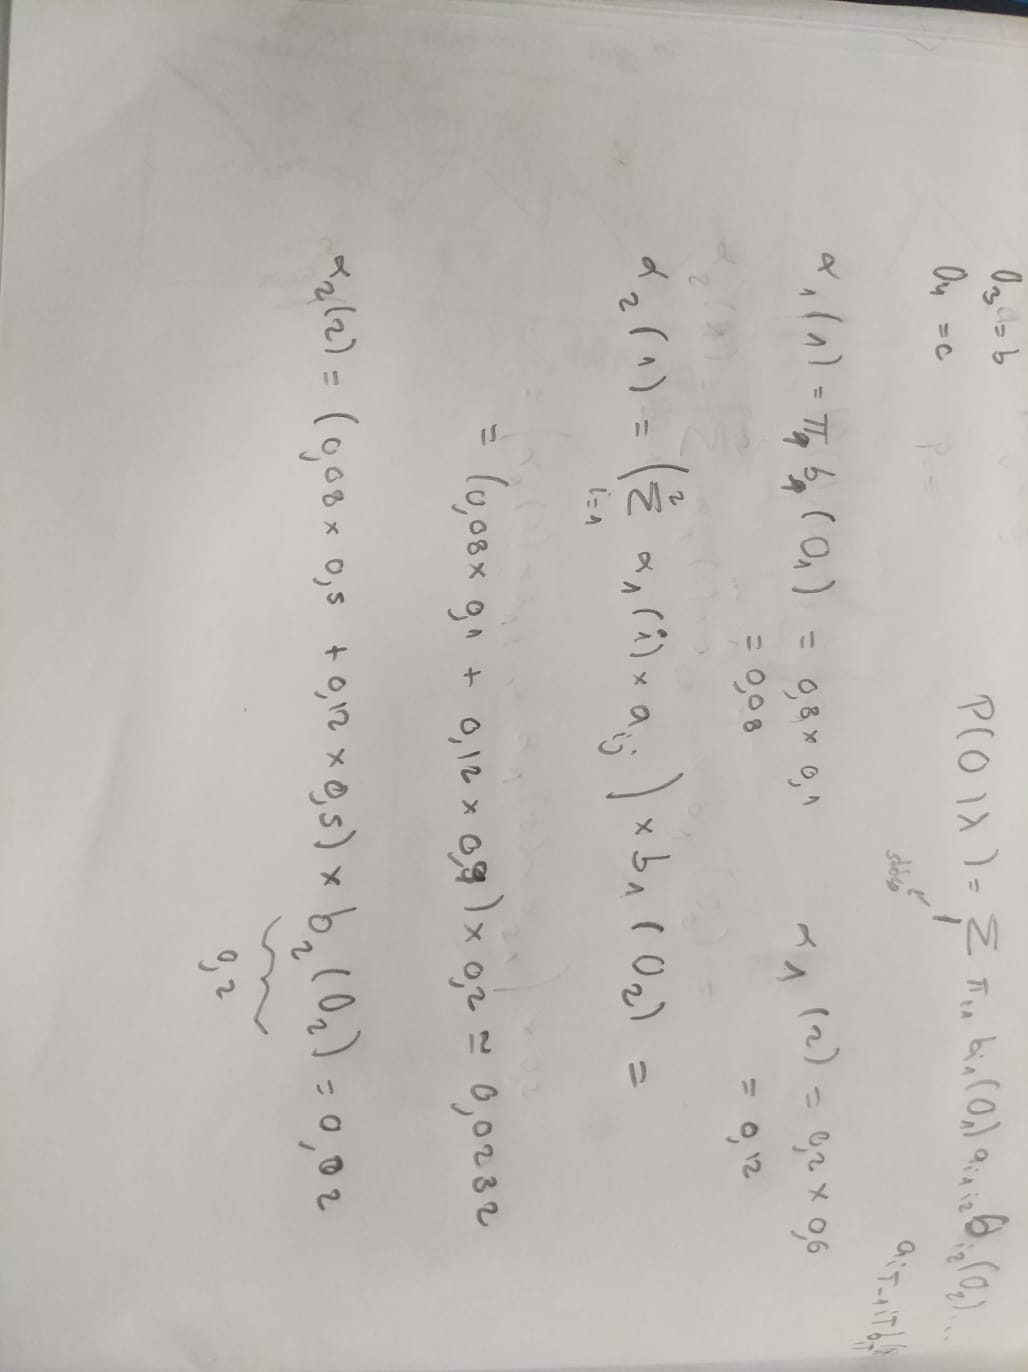 O₃ = b
O₄ = c
P(O|λ) = Σ π_{i1} b_{i1}(O₁) a_{i1 i2} b_{i2}(O₂)...
α₁(1) = π₁ b₁(O₁) = 0,8 × 0,1
= 0,08
α₁(2) = 0,2 × 0,6
= 0,12
α₂(1) = (Σ_{i=1}^{2} α₁(i) × a_{ij}) × b₁(O₂) =
= (0,08 × 0,1 + 0,12 × 0,9) × 0,2 = 0,0232
α₂(2) = (0,08 × 0,5 + 0,12 × 0,5) × b₂(O₂) = 0,02
0,2